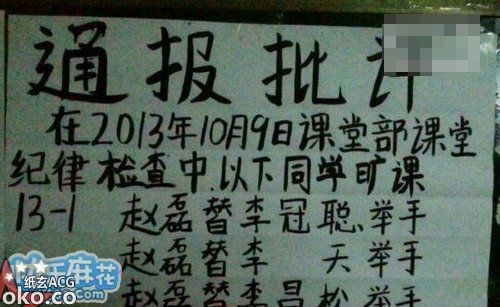 通报批评
在2013年10月9日课堂部课堂
纪律检查中,以下同学旷课
13-1 赵磊替李冠聪举手
赵磊替李 天举手
赵磊替李昌松举手
纸玄ACG
oko.co